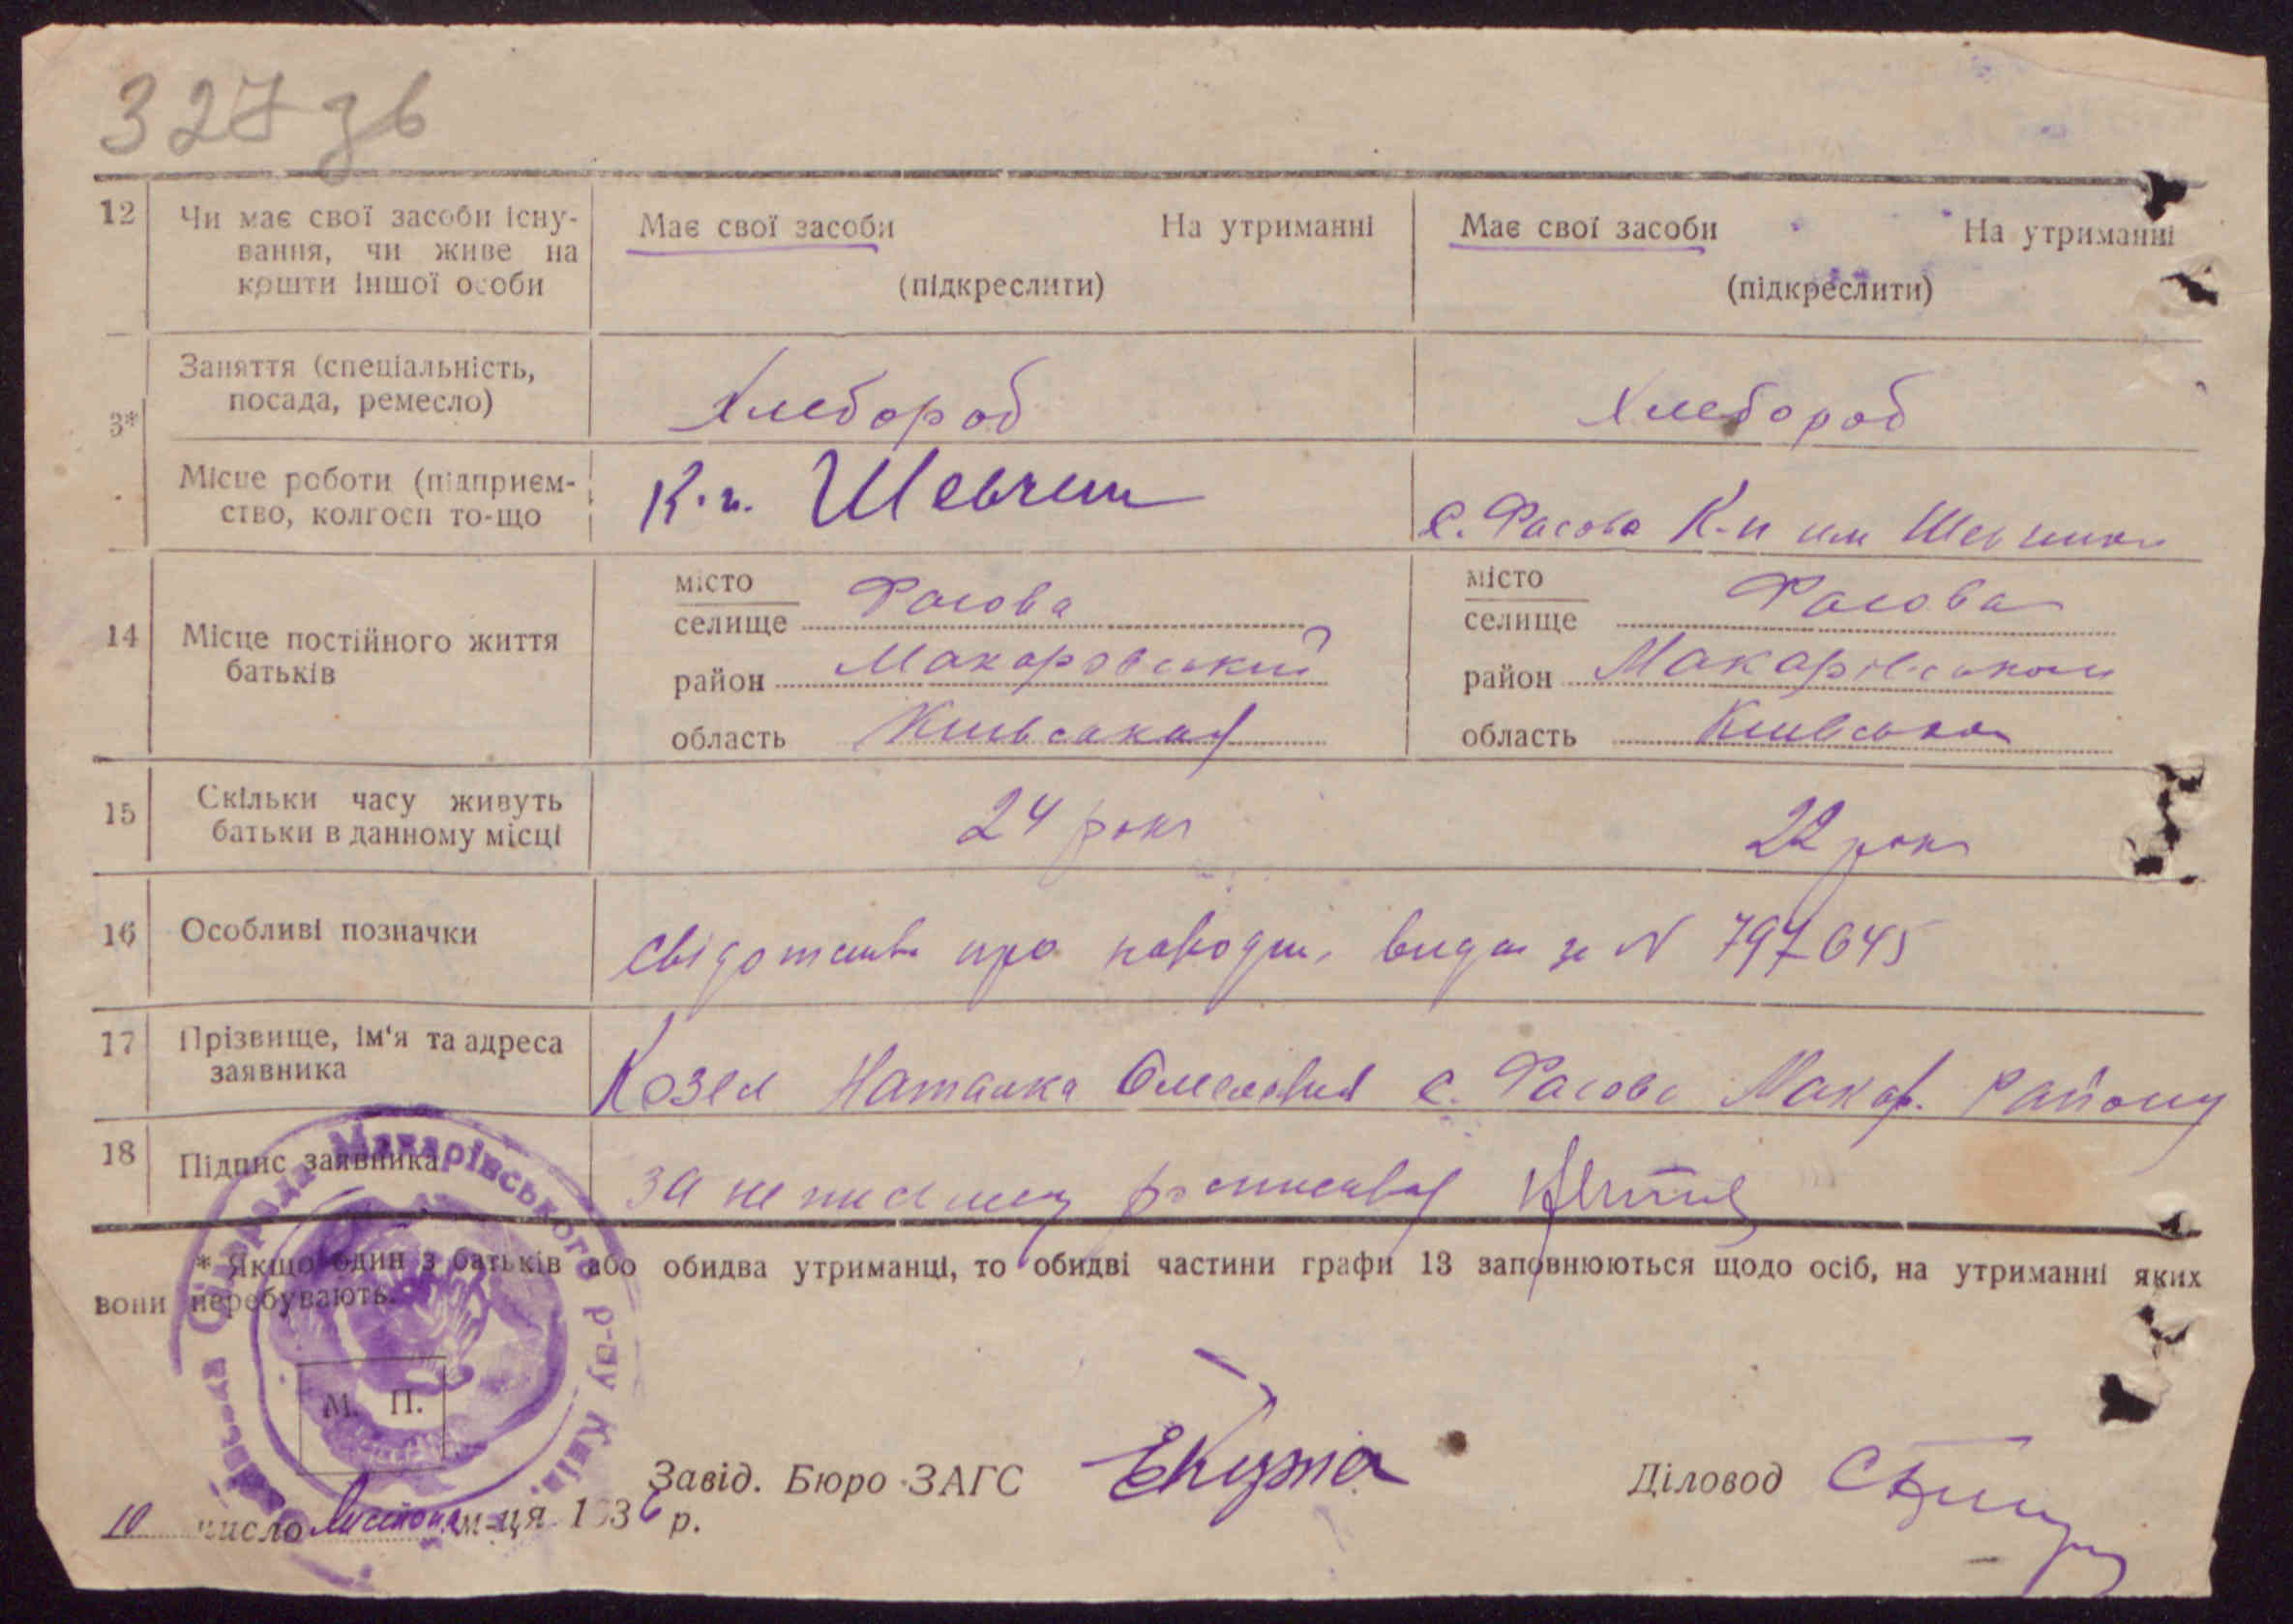 327 зв
12 Чи має свої засоби існу- Має свої засоби На утриманні Має свої засоби На утриманні
вання, чи живе на
кошти іншої особи (підкреслити) (підкреслити)
Заняття (спеціальність,
посада, ремесло) Хлебороб Хлебороб
3*
Місце роботи (підприєм- К-п. Шевчен
ство, колгосп то-що с. Фасова К-п им Шевченка
місто місто
Фасова Фасова
селище селище
14 Місце постійного життя
батьків район Макаровський район Макарівський
область Київська область Київська
15 Скільки часу живуть 24 рокі 22 рокі
батьки в данному місці
16 Особливі позначки свідотство про народж. видан за N 797645
17 Прізвище, ім'я та адреса
заявника Козел Наталка с. Фасова Макар. Району
18 Підпис заявника за неписьмену
* Якщо один з батьків або обидва утриманці, то обидві частини графи 13 заповнюються щодо осіб, на утриманні яких
вони перебувають.
Сільрада Макарівського р-ну Київ.
М. П.
Завід. Бюро ЗАГС Діловод
10 число м-ця 1936 р.